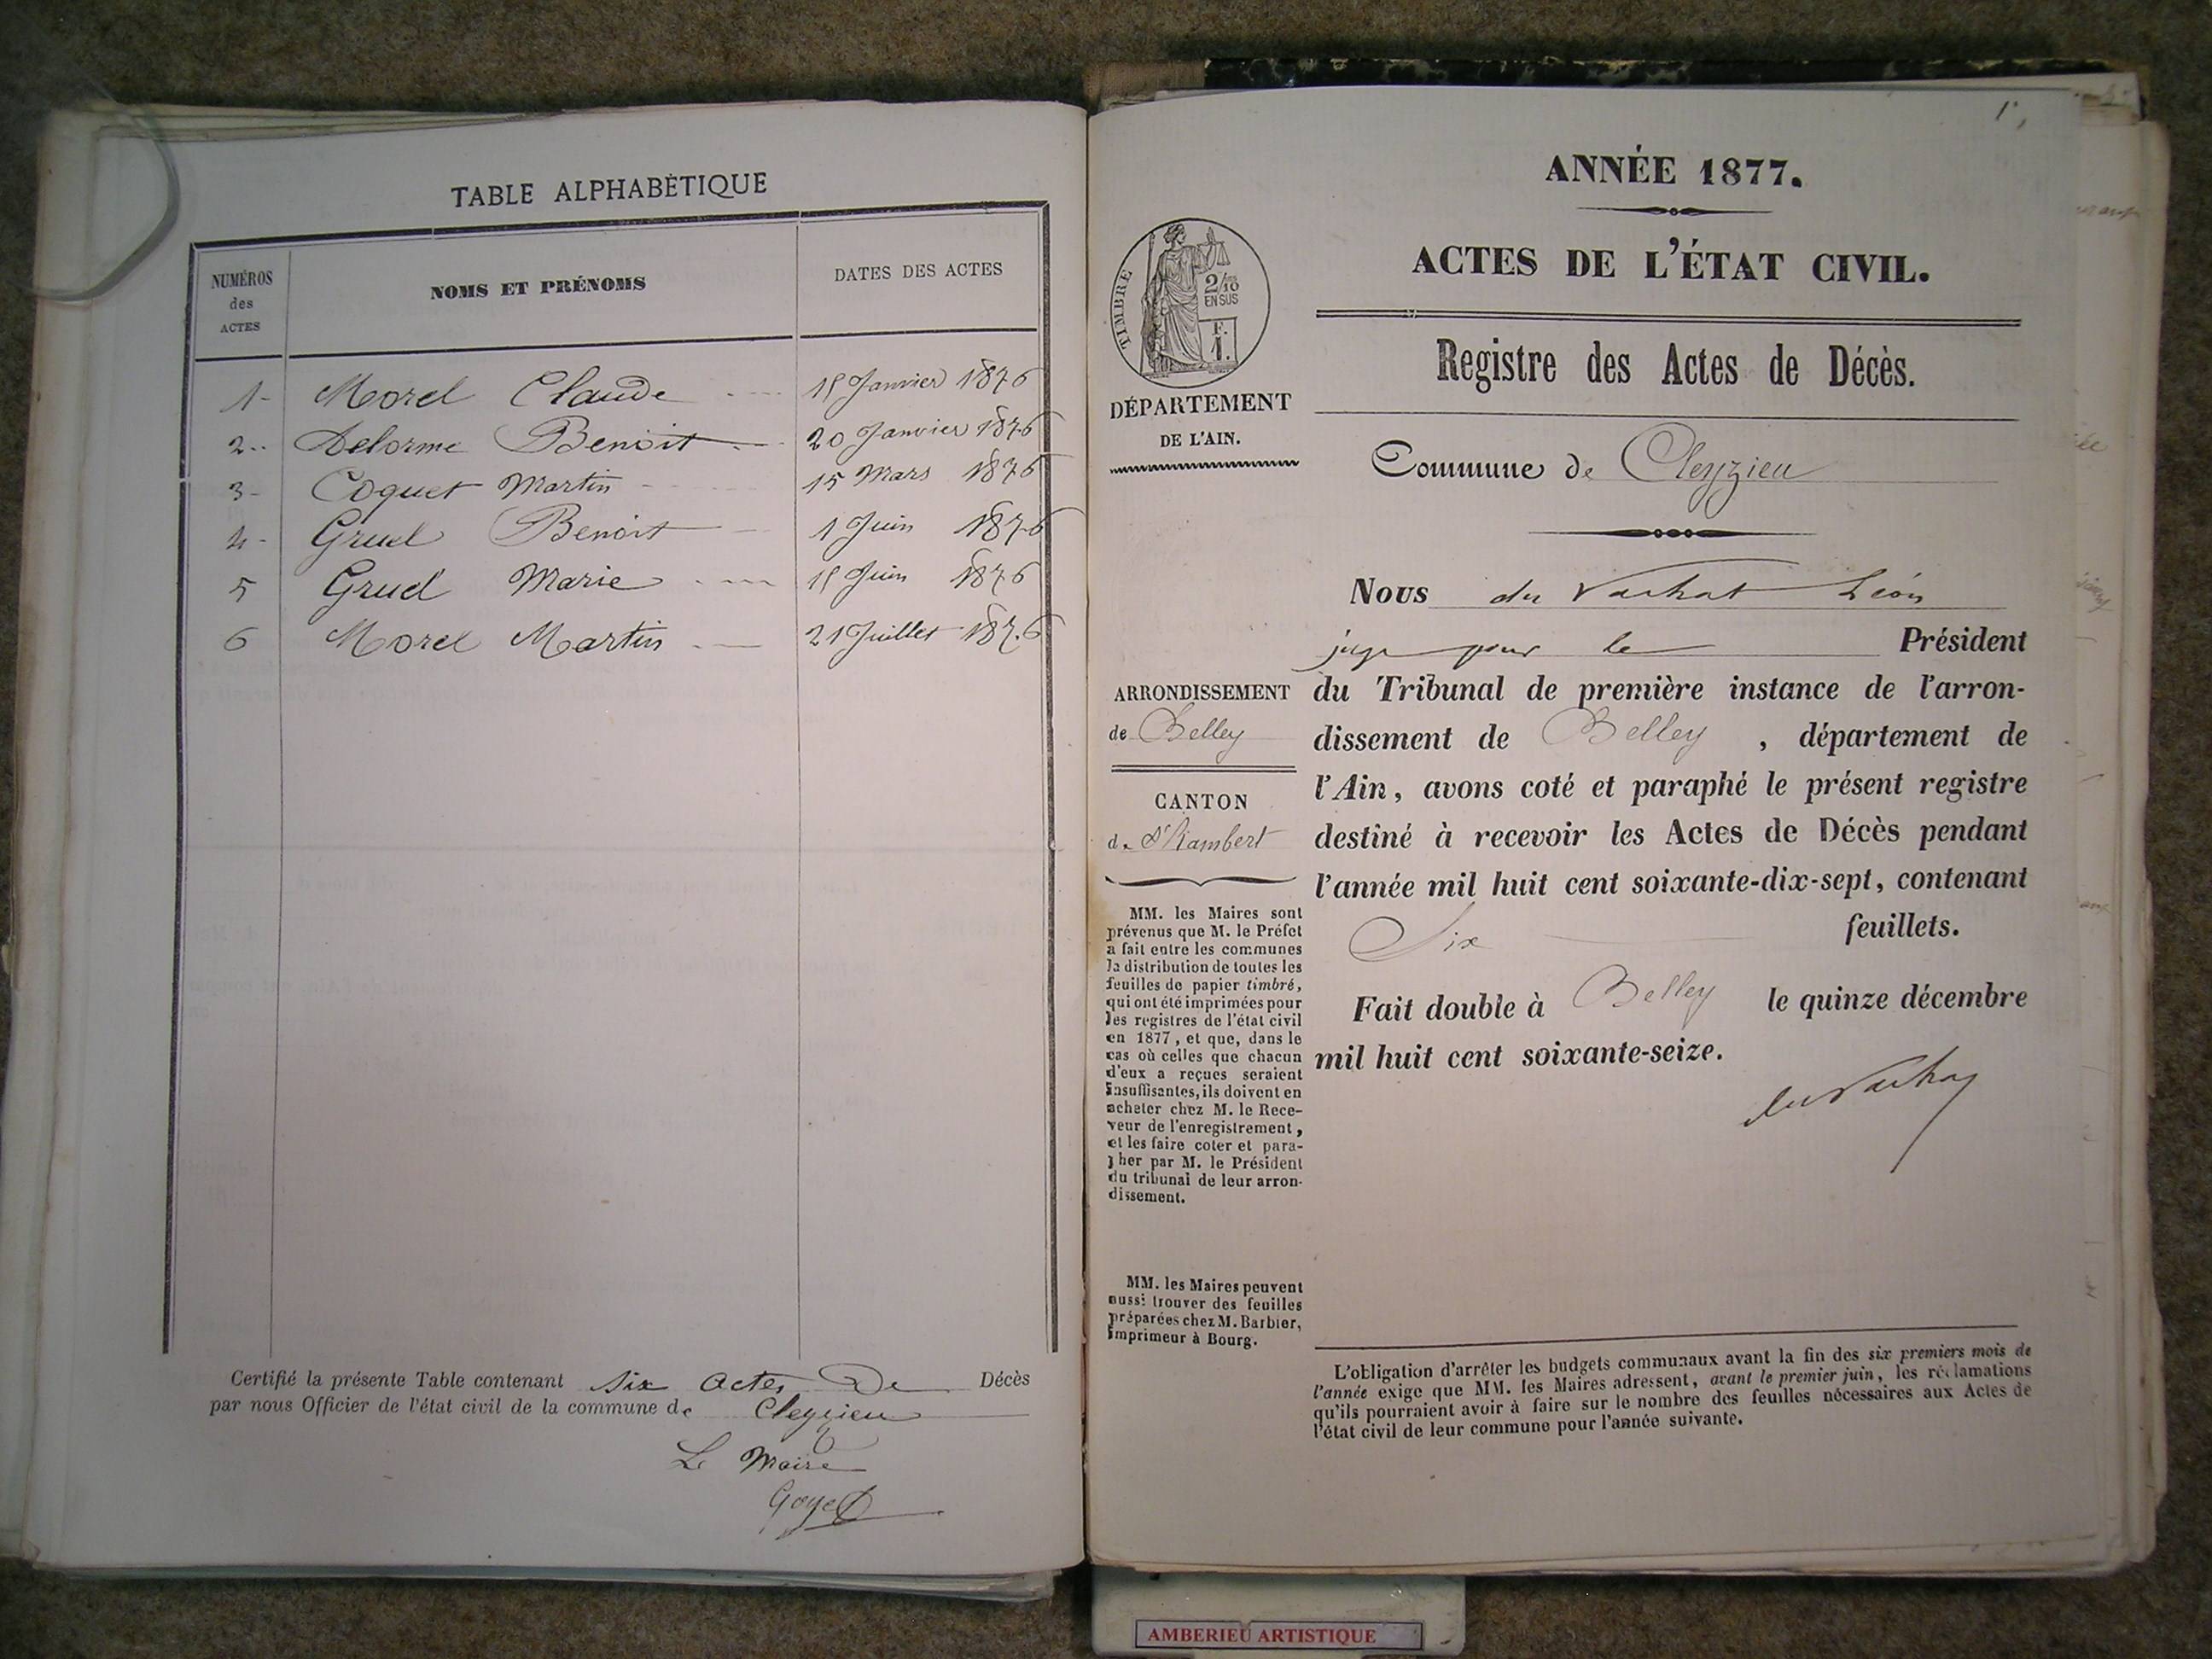 TABLE ALPHABÉTIQUE
NUMÉROS des ACTES
NOMS ET PRÉNOMS
DATES DES ACTES
1- Morel Claude 15 Janvier 1876
2.. Delorme Benoit 20 Janvier 1876
3- Coquet Martin 15 Mars 1876
4- Gruel Benoit 1 Juin 1876
5 Gruel Marie 15 Juin 1876
6 Morel Martin 21 Juillet 1876
Certifié la présente Table contenant six actes De Décès
par nous Officier de l'état civil de la commune de Cleyzieu
Le Maire
Goyet
1.
ANNÉE 1877.
ACTES DE L'ÉTAT CIVIL.
Registre des Actes de Décès.
Commune de Cleyzieu
TIMBRE
2/10
EN SUS
F.
1.
DÉPARTEMENT
DE L'AIN.
ARRONDISSEMENT
de Belley
CANTON
de St Rambert
MM. les Maires sont
prévenus que M. le Préfet
a fait entre les communes
la distribution de toutes les
feuilles de papier timbré,
qui ont été imprimées pour
les registres de l'état civil
en 1877, et que, dans le
cas où celles que chacun
d'eux a reçues seraient
insuffisantes, ils doivent en
acheter chez M. le Rece-
veur de l'enregistrement,
et les faire coter et para-
pher par M. le Président
du tribunal de leur arron-
dissement.
MM. les Maires peuvent
aussi trouver des feuilles
préparées chez M. Barbier,
imprimeur à Bourg.
Nous du Vachat Léon
juge pour le Président
du Tribunal de première instance de l'arron-
dissement de Belley, département de
l'Ain, avons coté et paraphé le présent registre
destiné à recevoir les Actes de Décès pendant
l'année mil huit cent soixante-dix-sept, contenant
Six feuillets.
Fait double à Belley le quinze décembre
mil huit cent soixante-seize.
du Vachat
L'obligation d'arrêter les budgets communaux avant la fin des six premiers mois de
l'année exige que MM. les Maires adressent, avant le premier juin, les réclamations
qu'ils pourraient avoir à faire sur le nombre des feuilles nécessaires aux Actes de
l'état civil de leur commune pour l'année suivante.
AMBERIEU ARTISTIQUE